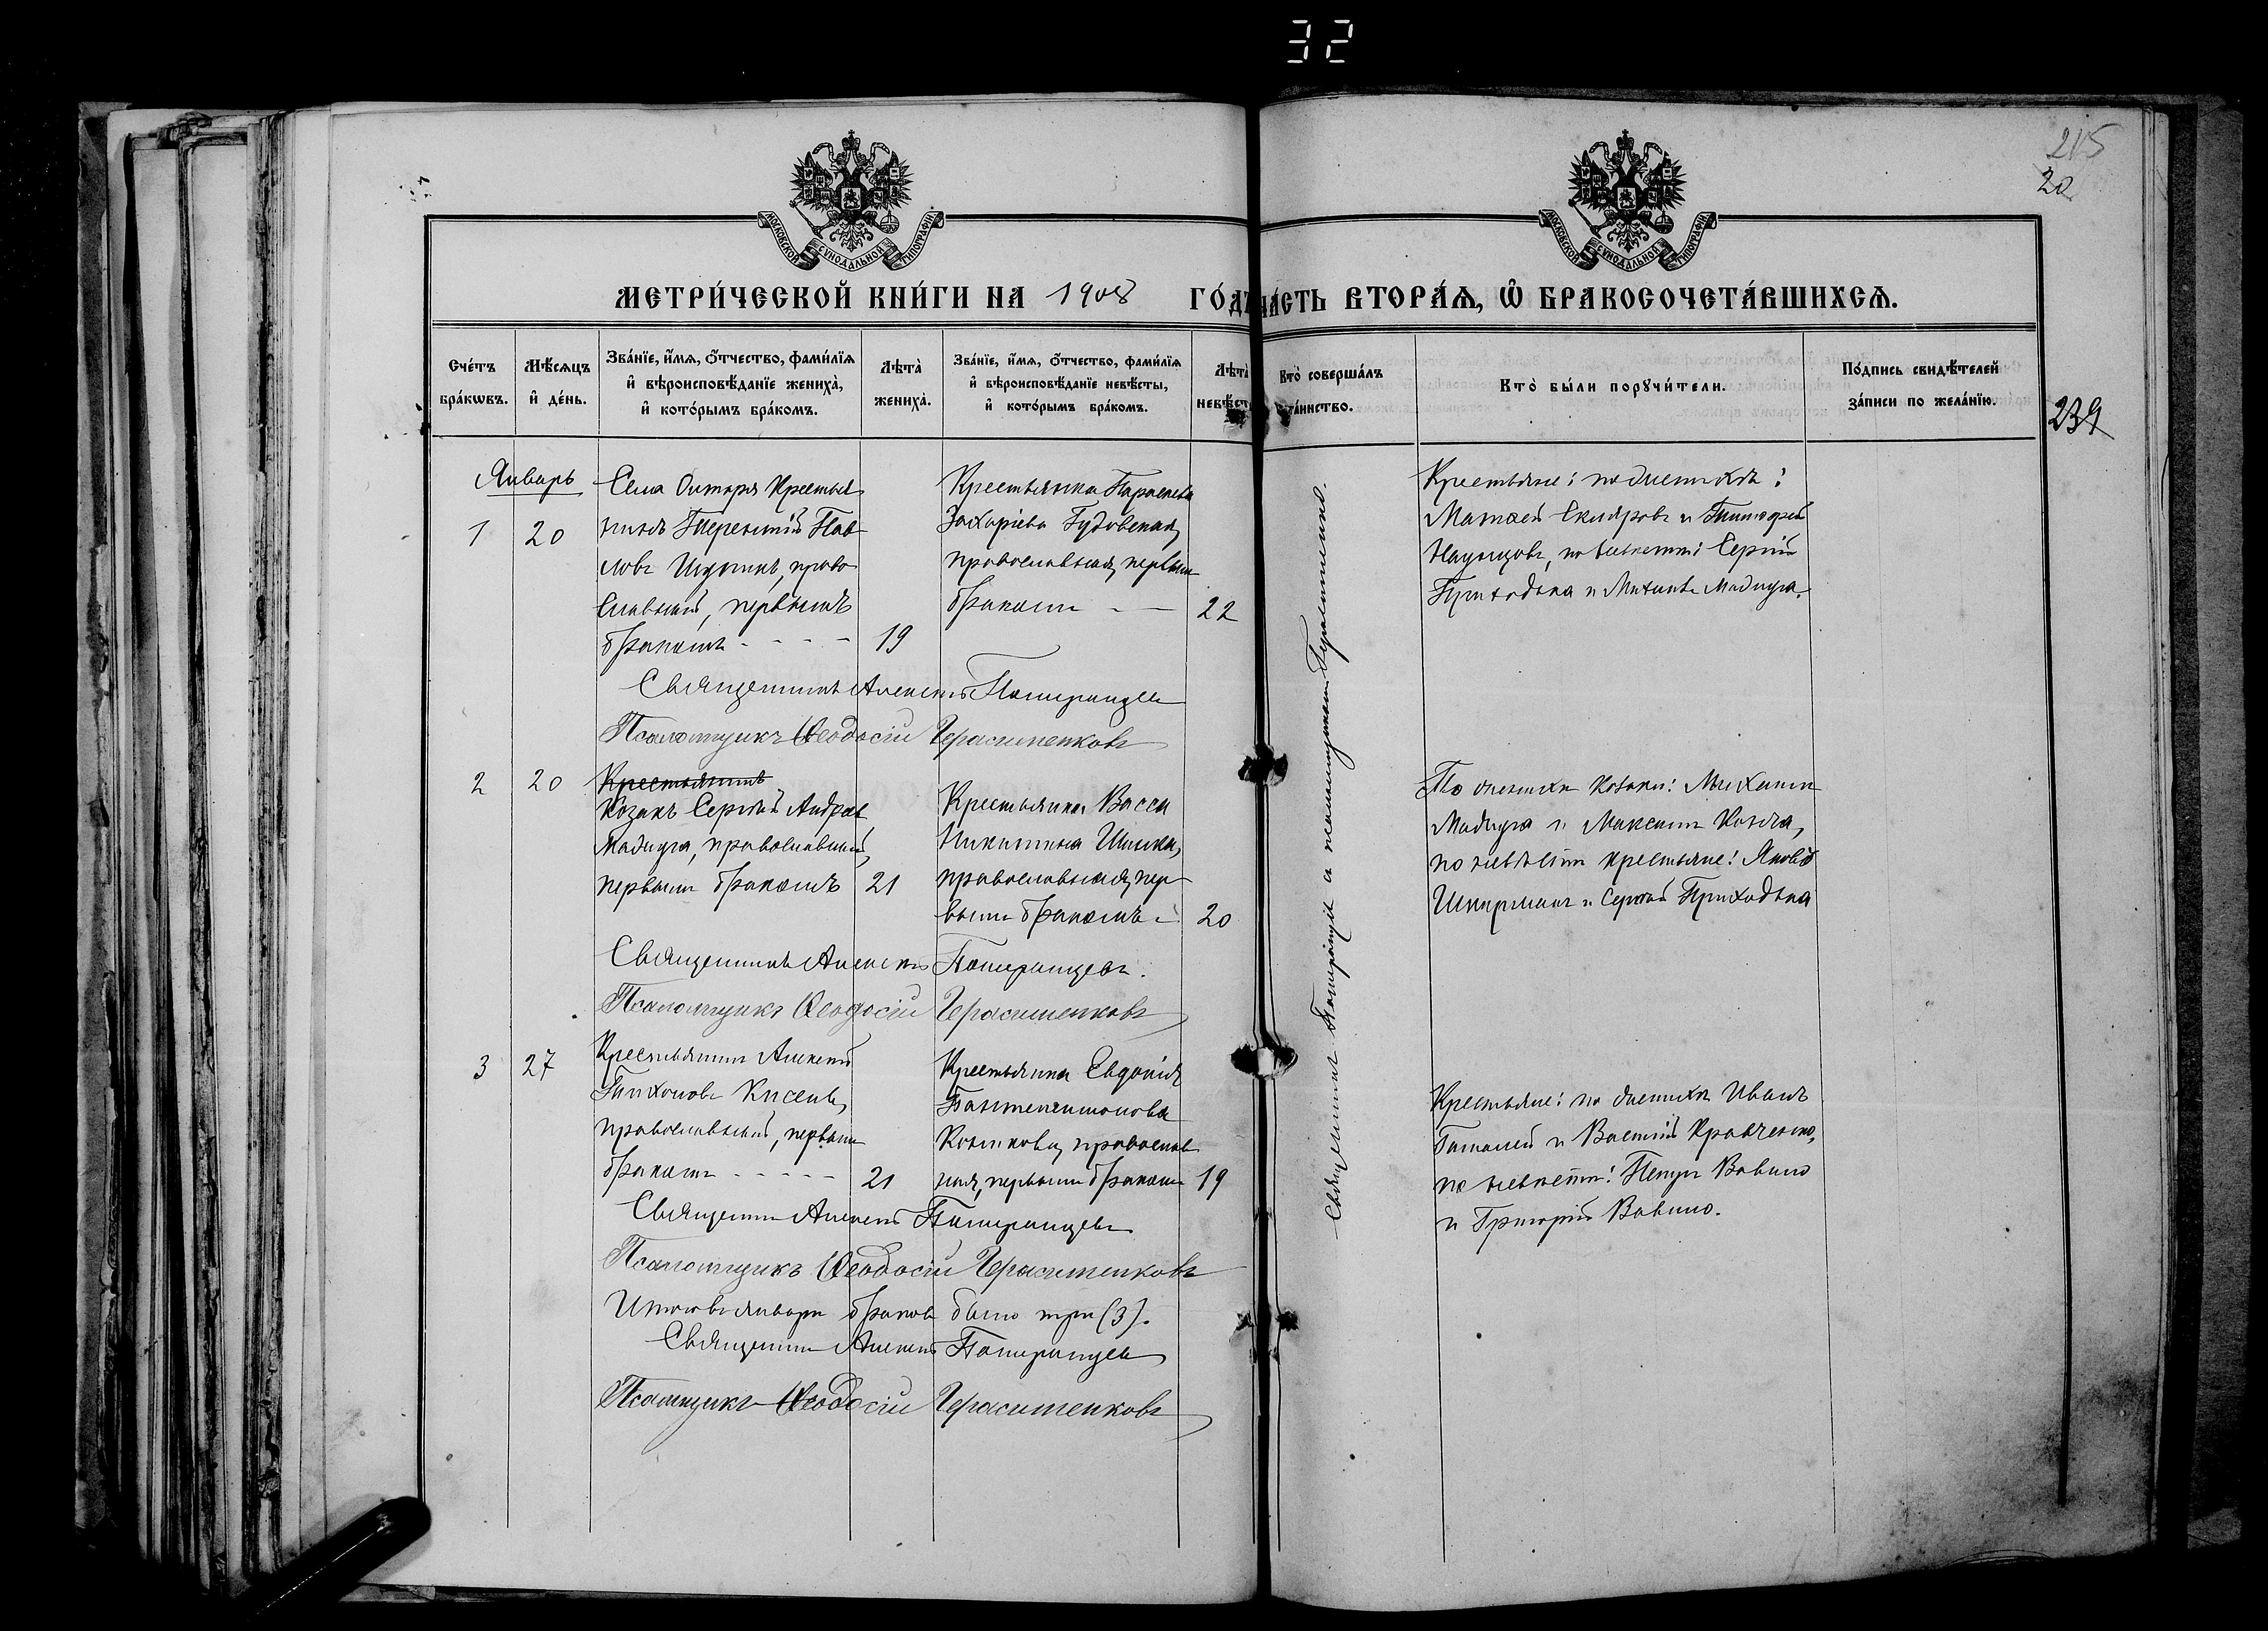 32
215
20
МОСКОВСКОЙ СѴНОДАЛЬНОЙ ТИПОГРАФІИ
МОСКОВСКОЙ СѴНОДАЛЬНОЙ ТИПОГРАФІИ
МЕТРИ́ЧЕСКОЙ КНИ́ГИ НА 1908 ГО́ДЪ
ЧА́СТЬ ВТОРА́Я, Ѡ БРАКОСОЧЕТА́ВШИХСЯ.
Сче́тъ бра́кѡвъ.
Мѣ́сяцъ и҆ де́нь.
Зва́нїе, и҆́мя, ѻ҆́тчество, фами́лїя
и҆ вѣроисповѣ́данїе жениха̀,
и҆ кото́рымъ бра́комъ.
Лѣта̀ жениха̀.
Зва́нїе, и҆́мя, ѻ҆́тчество, фами́лїя
и҆ вѣроисповѣ́данїе невѣ́сты,
и҆ кото́рымъ бра́комъ.
Лѣта̀
невѣст
Кто̀ соверша́лъ
та́инство.
Кто̀ бы́ли порꙋчи́тели.
По́дпись свидѣ́телей
за́писи по жела́нїю.
239
Январь
1 20
Села Крестья
нинъ Терентій Пав
ловъ право
славный, первымъ
бракомъ - - - - 19
Крестьянка Параскева
Захаріева Гудовская,
православная, первымъ
бракомъ - - 22
Крестьяне: по женихѣ:
Матвей Скляровъ и Тимофей
по невѣстѣ: Сергій
Приходька и Михаилъ Маднура.
Священникъ Алексѣй
Псаломщикъ Ѳеодосій Герасименковъ
2 20
Крестьянинъ
Козакъ Сергѣй Андреев
Маднура, православный,
первымъ бракомъ 21
Крестьянка Васса
Никитина Шишка,
православная, пер
вымъ бракомъ - 20
По женихѣ козаки: Михаилъ
Маднура и Максимъ
по невѣстѣ крестьяне: Яковъ
и Сергѣй Приходька
Священникъ Алексѣй
Псаломщикъ Ѳеодосій Герасименковъ
3 27
Крестьянинъ Алексѣй
Тихоновъ Кисель,
православный, первымъ
бракомъ - - - - - 21
Крестьянка Евдокія
Пантелеимонова
православ
ная, первымъ бракомъ 19
Крестьяне: по женихѣ Иванъ
и Василій Кравченко,
по невѣстѣ: Петръ Вовкъ
и Григорій
Священникъ Алексѣй
Псаломщикъ Ѳеодосій Герасименковъ
Итого въ январѣ браковъ было три (3).
Священникъ Алексѣй
Псаломщикъ Ѳеодосій Герасименковъ
Священникъ съ псаломщикомъ